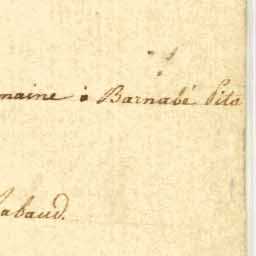 maine à Barnabé Pita
Rabaud.